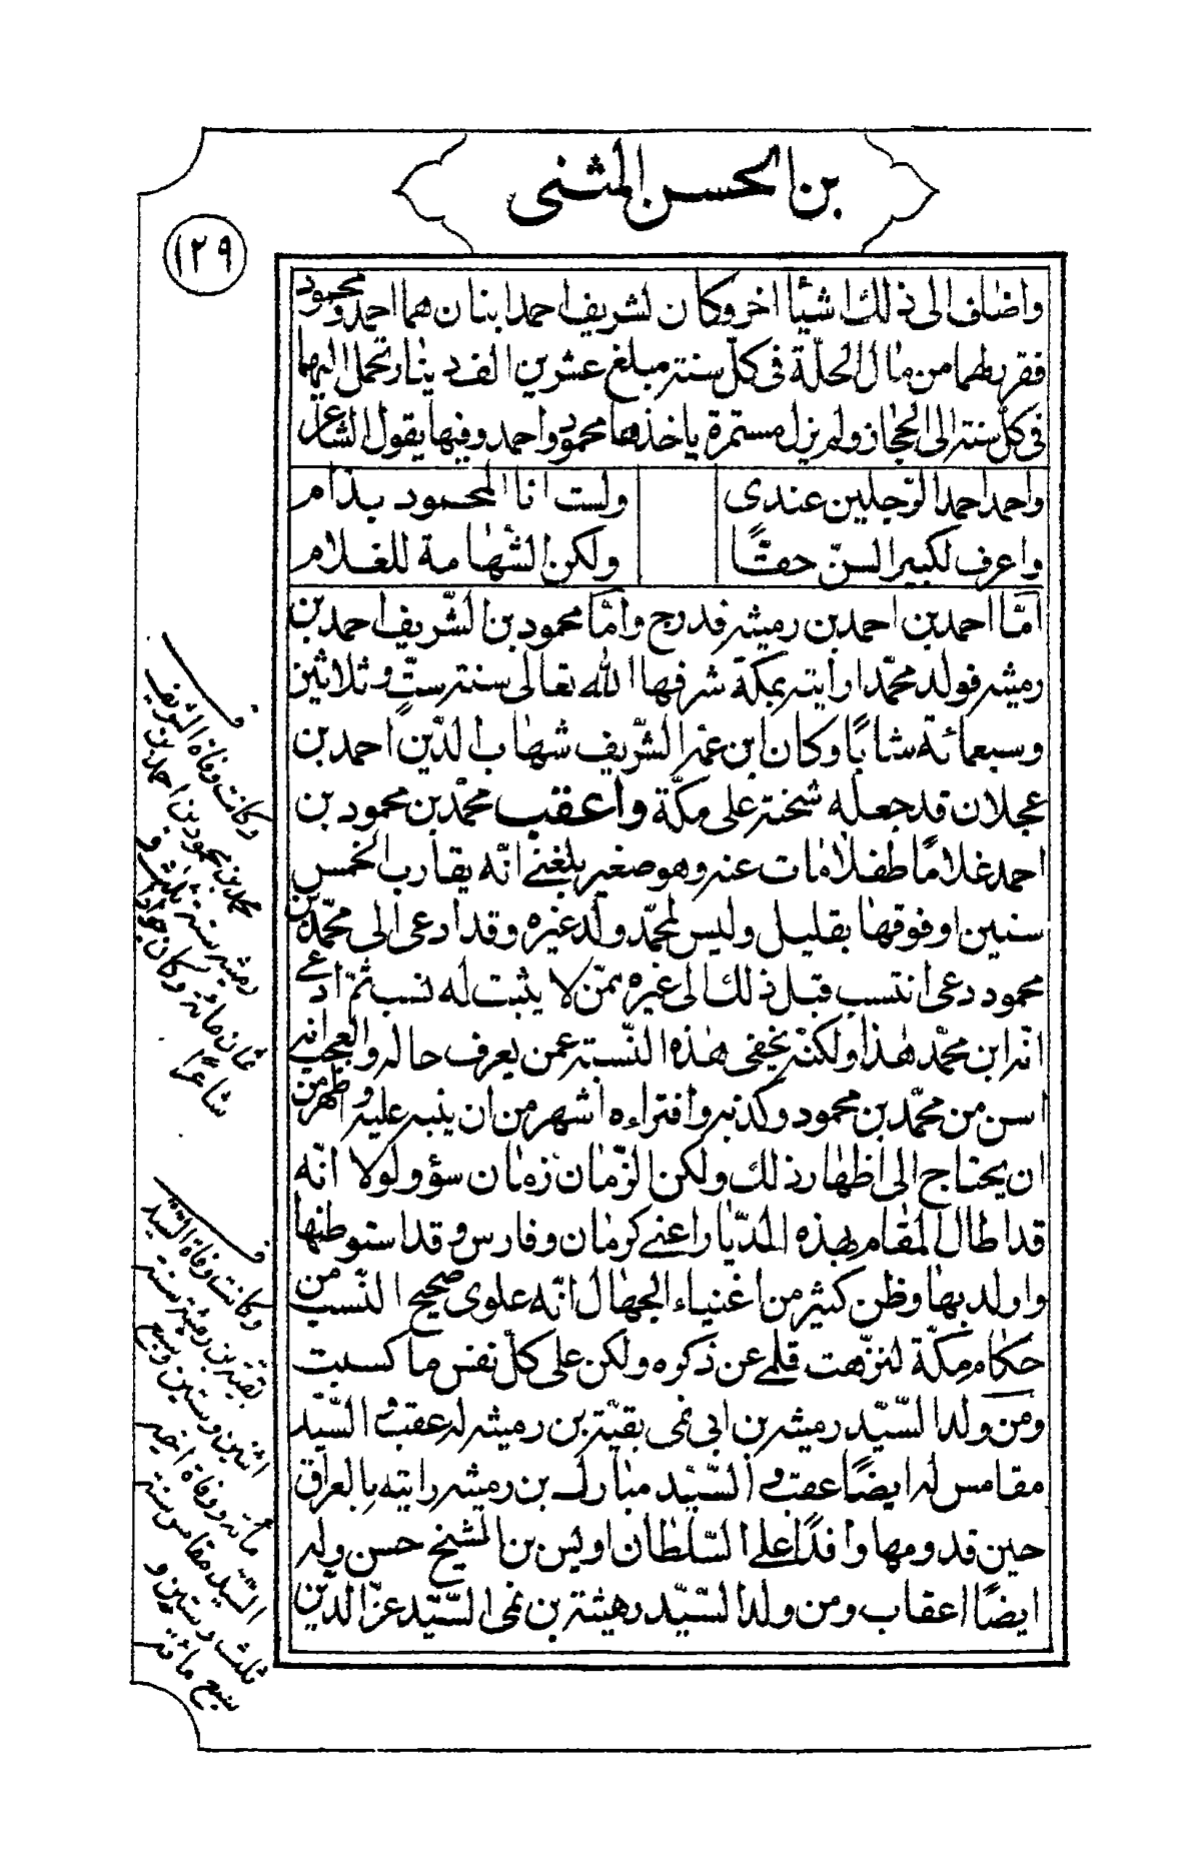 بن الحسن المثنى
١٢٩
واضاف الى ذلك اشيئا اخر وكان لشريف احمد ابنان هما احمد ومحمود
فقر بطما من مال الحلّة فى كلّ سنة مبلغ عشرين الف دينار تحمل اليهما
فى كلّ سنة الى الحجاز ولم يزل مستمرة ياخذها محمود واحمد وفيها يقول الشاعر
واحمد احمد الرّجلين عندى ولست انا المحمود بذام
واعرف لكبير السنّ حقّا ولكن الشهامة للغلام
امّا احمد بن احمد بن رميثه فدرج وامّا محمود بن الشّريف احمد بن
رميثه فولد محمّدا رايته بمكة شرفها الله تعالى سنة ستّ وثلاثين
وسبعمائة شابّا وكان ابن عمّه الشّريف شهاب الدّين احمد بن
عجلان قد جعله شحنة على مكّة واعقب محمّد بن محمود بن
احمد غلامًا طفلا مات عنه وهو صغير بلغنى انّه يقارب الخمس
سنين او فوقها بقليل وليس لمحمّد ولد غيره وقد ادعى الى محمّد بن
محمود دعى انتسب قبل ذلك الى غيره ممّن لا يثبت له نسب ثمّ ادعى
انّه ابن محمّد هذا ولكنّه يخفى هذه النّسبة عمن يعرف حاله والعجب انه
اسن من محمّد بن محمود وكذبه وافتراءه اشهر من ان ينبه عليه واظهر من
ان يحتاج الى اظهار ذلك ولكن الزّمان زمان سؤ ولولا انّه
قد اطال المقام بهذه الدّيار اعنى كرمان وفارس وقد استوطنها
واولد بها وظن كثير من اغنياء الجهال انّه علوى صحيح النّسب من
حكام مكّة لنزّهت قلمى عن ذكره ولكن على كلّ نفس ما كسبت
ومن ولد السّيّد رميثه بن ابى نمى بقيّة بن رميثه له عقب و السّيّد
مقامس له ايضًا عقب و السّيّد مبارك بن رميثه رايته بالعراق
حين قدومها وافدًا على السّلطان اويس بن الشيخ حسن وله
ايضًا اعقاب ومن ولد السّيّد رهيثة بن نمى السّيّد عزّ الدّين
وكانت وفاة الشريف
محمد بن محمود بن احمد بن
رميثه سنة ثلث و
ثمان مائة وكان جوادا
شاعرًا
وكانت وفاة السّيّد
بقية بن رميثة سنة
اثنين وستين وسبع
مائة ووفاة اخيه
السّيّد مقامس سنة
ثلث وستين و
سبع مائة